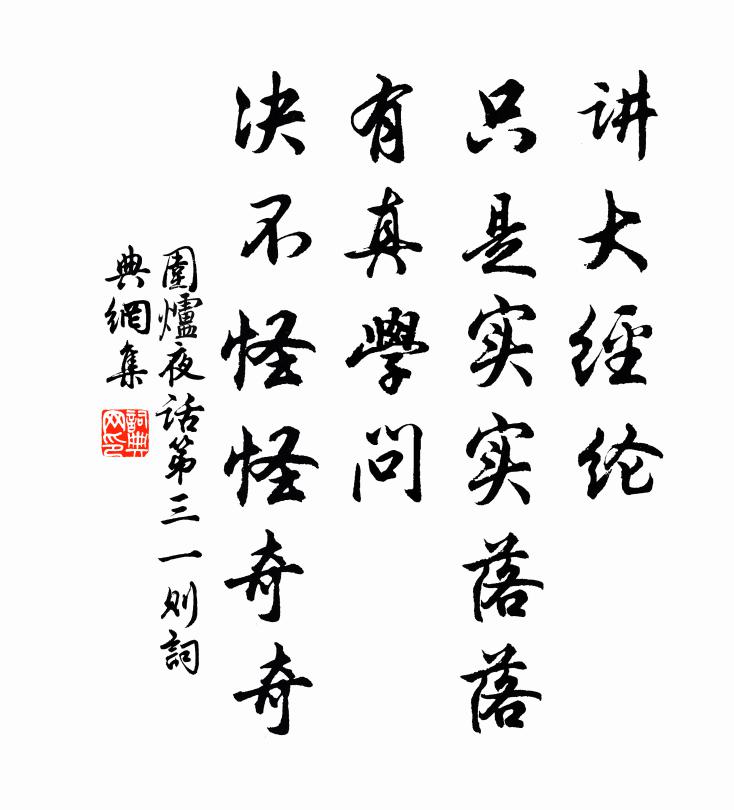 讲大经纶
只是实实落落
有真學问
决不怪怪奇奇
圍爐夜话第三一则詞
典網集
詞典
网印